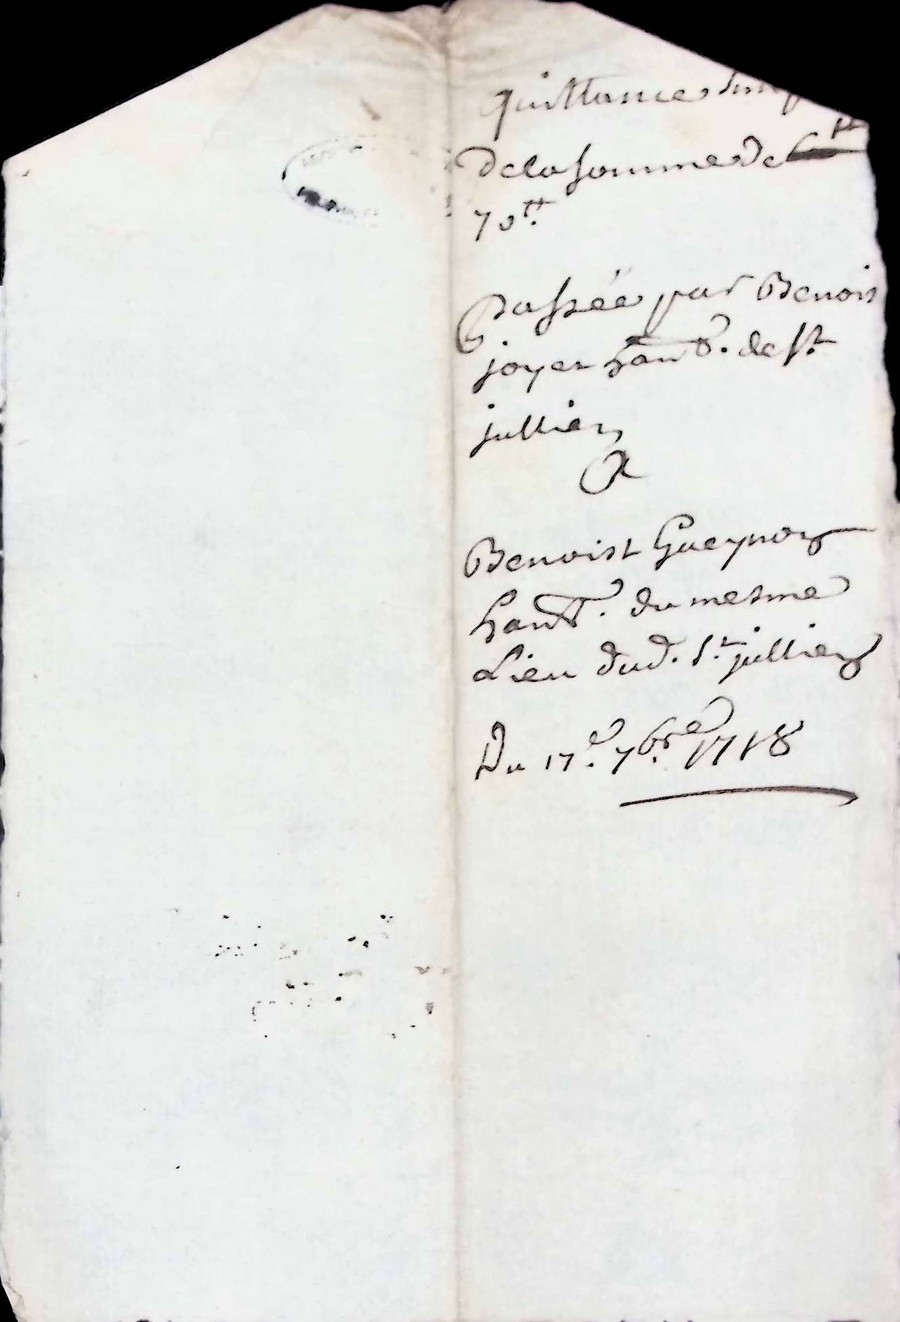 quittance
de la somme de
70tt
Passée par Benois
joyer hant. de st
jullien
A
Benoist Gueynon
hant. du mesme
Lieu dud. st jullien
Du 17e. 7bre 1718